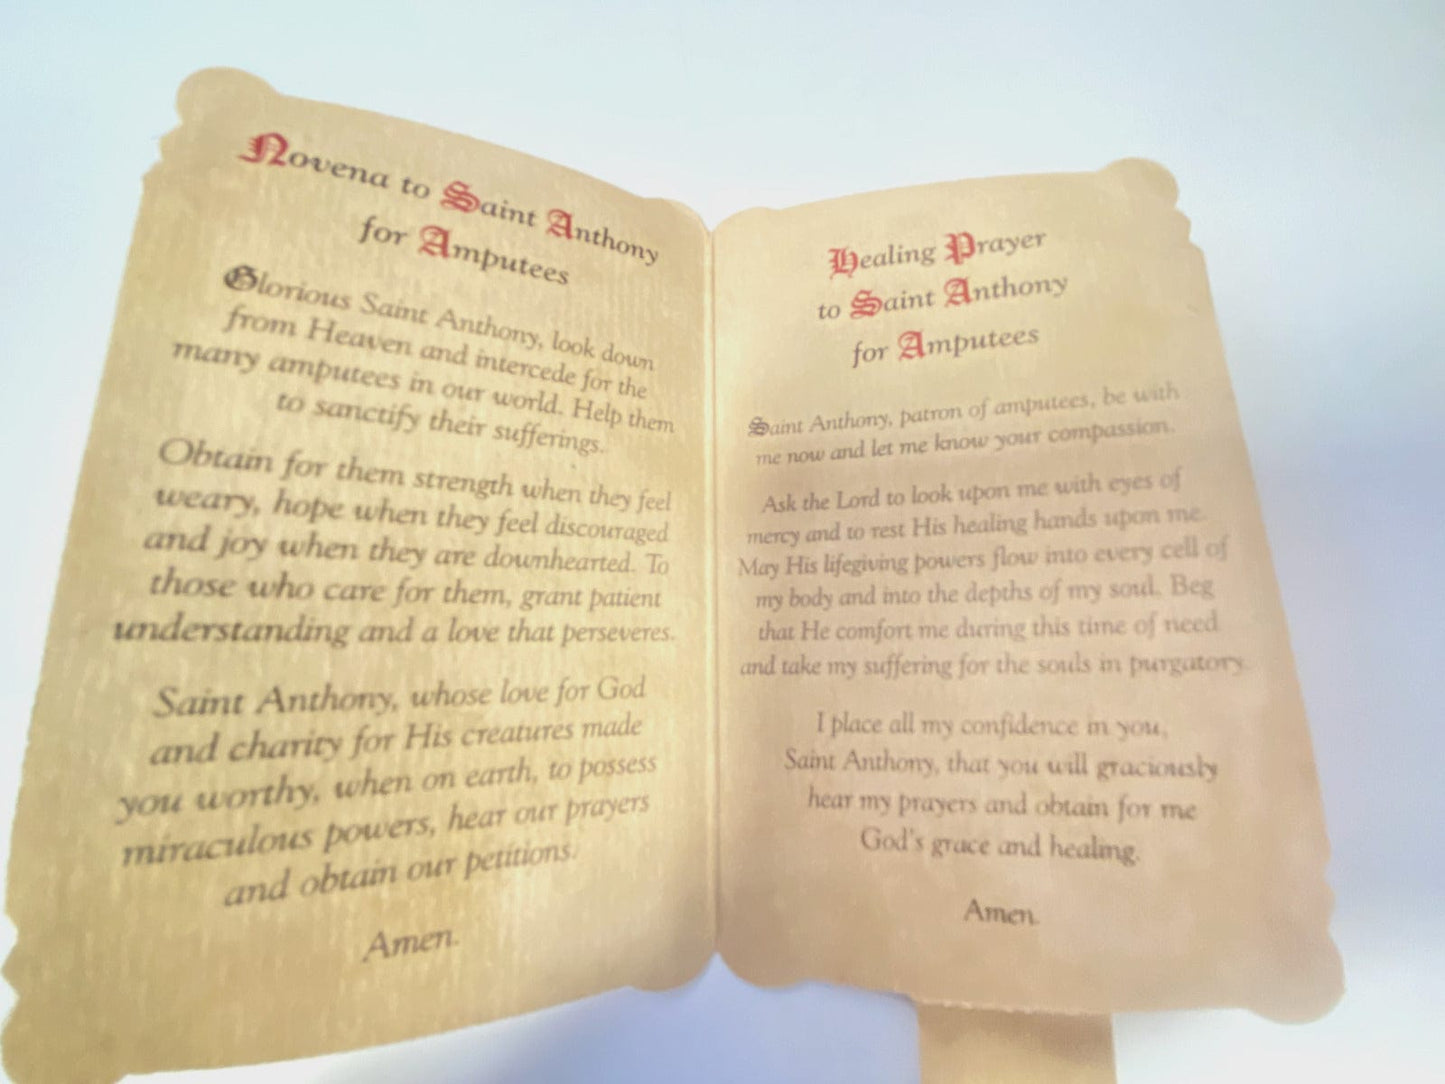 Novena to Saint Anthony
for Amputees
Glorious Saint Anthony, look down
from Heaven and intercede for the
many amputees in our world. Help them
to sanctify their sufferings.
Obtain for them strength when they feel
weary, hope when they feel discouraged
and joy when they are downhearted. To
those who care for them, grant patient
understanding and a love that perseveres.
Saint Anthony, whose love for God
and charity for His creatures made
you worthy, when on earth, to possess
miraculous powers, hear our prayers
and obtain our petitions.
Amen.
Healing Prayer
to Saint Anthony
for Amputees
Saint Anthony, patron of amputees, be with
me now and let me know your compassion.
Ask the Lord to look upon me with eyes of
mercy and to rest His healing hands upon me.
May His lifegiving powers flow into every cell of
my body and into the depths of my soul. Beg
that He comfort me during this time of need
and take my suffering for the souls in purgatory.
I place all my confidence in you,
Saint Anthony, that you will graciously
hear my prayers and obtain for me
God's grace and healing.
Amen.